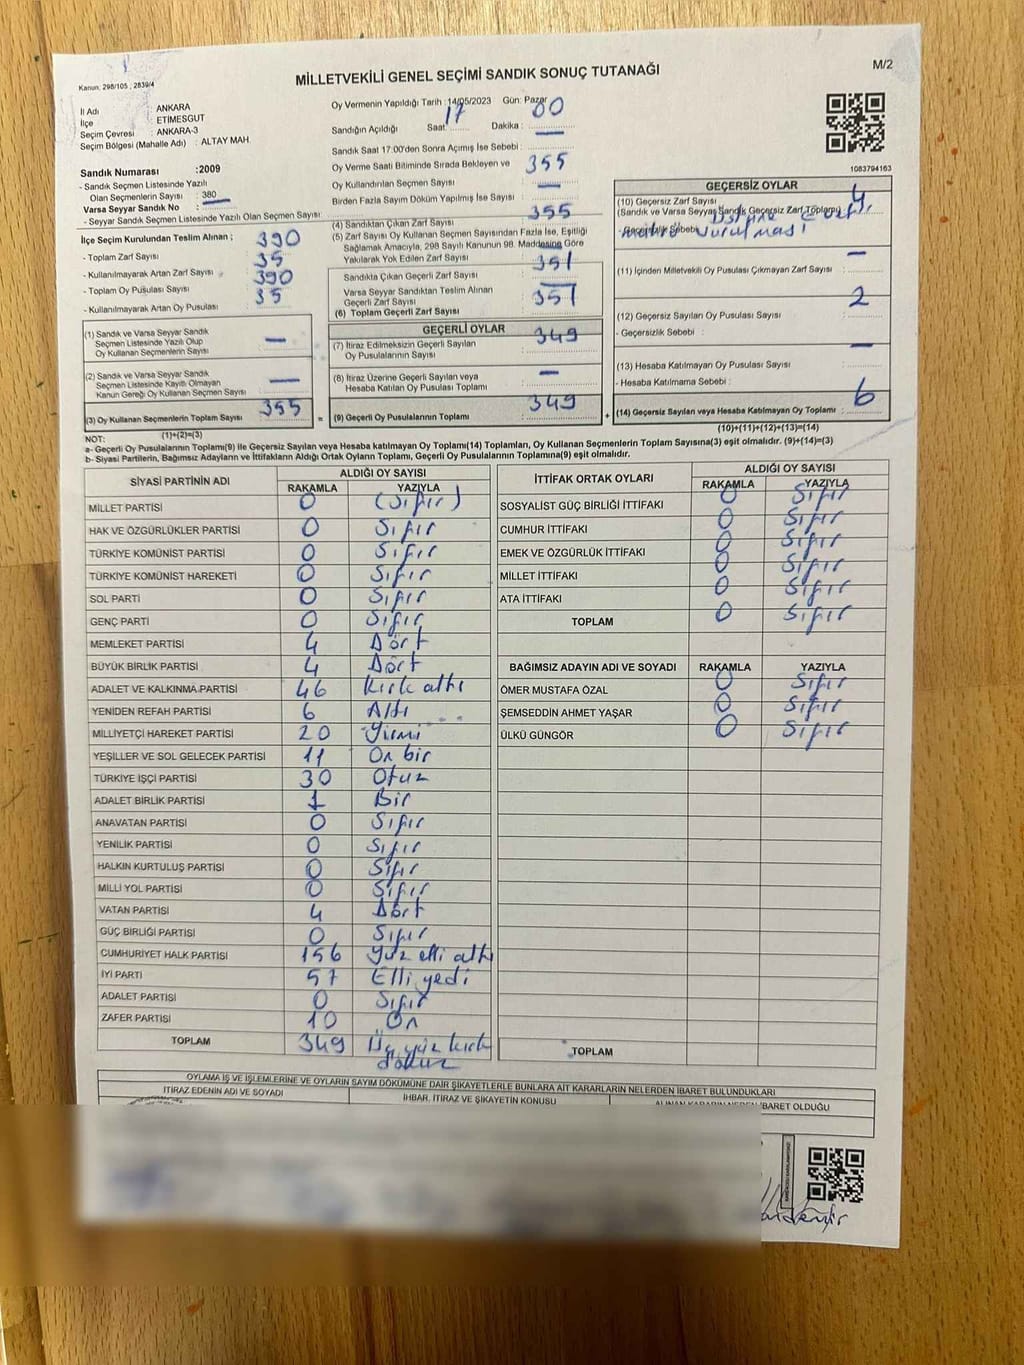 M/2
Kanun; 298/105 ; 2839/4
MİLLETVEKİLİ GENEL SEÇİMİ SANDIK SONUÇ TUTANAĞI
İl Adı : ANKARA
İlçe : ETİMESGUT
Seçim Çevresi : ANKARA-3
Seçim Bölgesi (Mahalle Adı) : ALTAY MAH
Sandık Numarası :2009
- Sandık Seçmen Listesinde Yazılı
Olan Seçmenlerin Sayısı : 380
Varsa Seyyar Sandık No :
- Seyyar Sandık Seçmen Listesinde Yazılı Olan Seçmen Sayısı
İlçe Seçim Kurulundan Teslim Alınan ;
- Toplam Zarf Sayısı 390
- Kullanılmayarak Artan Zarf Sayısı 35
- Toplam Oy Pusulası Sayısı 390
- Kullanılmayarak Artan Oy Pusulası 35
(1) Sandık ve Varsa Seyyar Sandık
Seçmen Listesinde Yazılı Olup
Oy Kullanan Seçmenlerin Sayısı —
(2) Sandık ve Varsa Seyyar Sandık
Seçmen Listesinde Kayıtlı Olmayan
Kanun Gereği Oy Kullanan Seçmen Sayısı —
(3) Oy Kullanan Seçmenlerin Toplam Sayısı 355
(1)+(2)=(3)
Oy Vermenin Yapıldığı Tarih : 14/05/2023 Gün: Pazar
Sandığın Açıldığı Saat: 17 Dakika : 00
Sandık Saat 17:00'den Sonra Açımış İse Sebebi : —
Oy Verme Saati Bitiminde Sırada Bekleyen ve
Oy Kullandırılan Seçmen Sayısı 355
Birden Fazla Sayım Döküm Yapılmış İse Sayısı —
(4) Sandıktan Çıkan Zarf Sayısı 355
(5) Zarf Sayısı Oy Kullanan Seçmen Sayısından Fazla İse, Eşitliği
Sağlamak Amacıyla, 298 Sayılı Kanunun 98. Maddesine Göre
Yakılarak Yok Edilen Zarf Sayısı —
Sandıkta Çıkan Geçerli Zarf Sayısı 351
Varsa Seyyar Sandıktan Teslim Alınan
Geçerli Zarf Sayısı —
(6) Toplam Geçerli Zarf Sayısı 351
GEÇERLİ OYLAR
(7) İtiraz Edilmeksizin Geçerli Sayılan
Oy Pusulalarının Sayısı 349
(8) İtiraz Üzerine Geçerli Sayılan veya
Hesaba Katılan Oy Pusulası Toplamı —
= (9) Geçerli Oy Pusulalarının Toplamı 349
1083794163
GEÇERSİZ OYLAR
(10) Geçersiz Zarf Sayısı 4
(Sandık ve Varsa Seyyar Sandık Geçersiz Zarf Toplamı)
- Geçersizlik Sebebi : üstüne
vurulması
(11) İçinden Milletvekili Oy Pusulası Çıkmayan Zarf Sayısı : —
(12) Geçersiz Sayılan Oy Pusulası Sayısı : 2
- Geçersizlik Sebebi :
(13) Hesaba Katılmayan Oy Pusulası Sayısı : —
- Hesaba Katılmama Sebebi :
+ (14) Geçersiz Sayılan veya Hesaba Katılmayan Oy Toplamı : 6
(10)+(11)+(12)+(13)=(14)
NOT:
a- Geçerli Oy Pusulalarının Toplamı(9) ile Geçersiz Sayılan veya Hesaba katılmayan Oy Toplamı(14) Toplamları, Oy Kullanan Seçmenlerin Toplam Sayısına(3) eşit olmalıdır. (9)+(14)=(3)
b- Siyasi Partilerin, Bağımsız Adayların ve İttifakların Aldığı Ortak Oyların Toplamı, Geçerli Oy Pusulalarının Toplamına(9) eşit olmalıdır.
SİYASİ PARTİNİN ADI ALDIĞI OY SAYISI
RAKAMLA YAZIYLA
MİLLET PARTİSİ 0 (Sıfır)
HAK VE ÖZGÜRLÜKLER PARTİSİ 0 Sıfır
TÜRKİYE KOMÜNİST PARTİSİ 0 Sıfır
TÜRKİYE KOMÜNİST HAREKETİ 0 Sıfır
SOL PARTİ 0 Sıfır
GENÇ PARTİ 0 Sıfır
MEMLEKET PARTİSİ 4 Dört
BÜYÜK BİRLİK PARTİSİ 4 Dört
ADALET VE KALKINMA PARTİSİ 46 Kırk altı
YENİDEN REFAH PARTİSİ 6 Altı
MİLLİYETÇİ HAREKET PARTİSİ 20 Yirmi
YEŞİLLER VE SOL GELECEK PARTİSİ 11 On bir
TÜRKİYE İŞÇİ PARTİSİ 30 Otuz
ADALET BİRLİK PARTİSİ 1 Bir
ANAVATAN PARTİSİ 0 Sıfır
YENİLİK PARTİSİ 0 Sıfır
HALKIN KURTULUŞ PARTİSİ 0 Sıfır
MİLLİ YOL PARTİSİ 0 Sıfır
VATAN PARTİSİ 4 Dört
GÜÇ BİRLİĞİ PARTİSİ 0 Sıfır
CUMHURİYET HALK PARTİSİ 156 Yüz elli altı
İYİ PARTİ 57 Elli yedi
ADALET PARTİSİ 0 Sıfır
ZAFER PARTİSİ 10 On
TOPLAM 349 Üç yüz kırk
dokuz
İTTİFAK ORTAK OYLARI ALDIĞI OY SAYISI
RAKAMLA YAZIYLA
SOSYALİST GÜÇ BİRLİĞİ İTTİFAKI 0 Sıfır
CUMHUR İTTİFAKI 0 Sıfır
EMEK VE ÖZGÜRLÜK İTTİFAKI 0 Sıfır
MİLLET İTTİFAKI 0 Sıfır
ATA İTTİFAKI 0 Sıfır
TOPLAM 0 Sıfır
BAĞIMSIZ ADAYIN ADI VE SOYADI RAKAMLA YAZIYLA
ÖMER MUSTAFA ÖZAL 0 Sıfır
ŞEMSEDDİN AHMET YAŞAR 0 Sıfır
ÜLKÜ GÜNGÖR 0 Sıfır
TOPLAM
OYLAMA İŞ VE İŞLEMLERİNE VE OYLARIN SAYIM DÖKÜMÜNE DAİR ŞİKAYETLERLE BUNLARA AİT KARARLARIN NELERDEN İBARET BULUNDUKLARI
İTİRAZ EDENİN ADI VE SOYADI İHBAR, İTİRAZ VE ŞİKAYETİN KONUSU ALINAN KARARIN NEDEN İBARET OLDUĞU